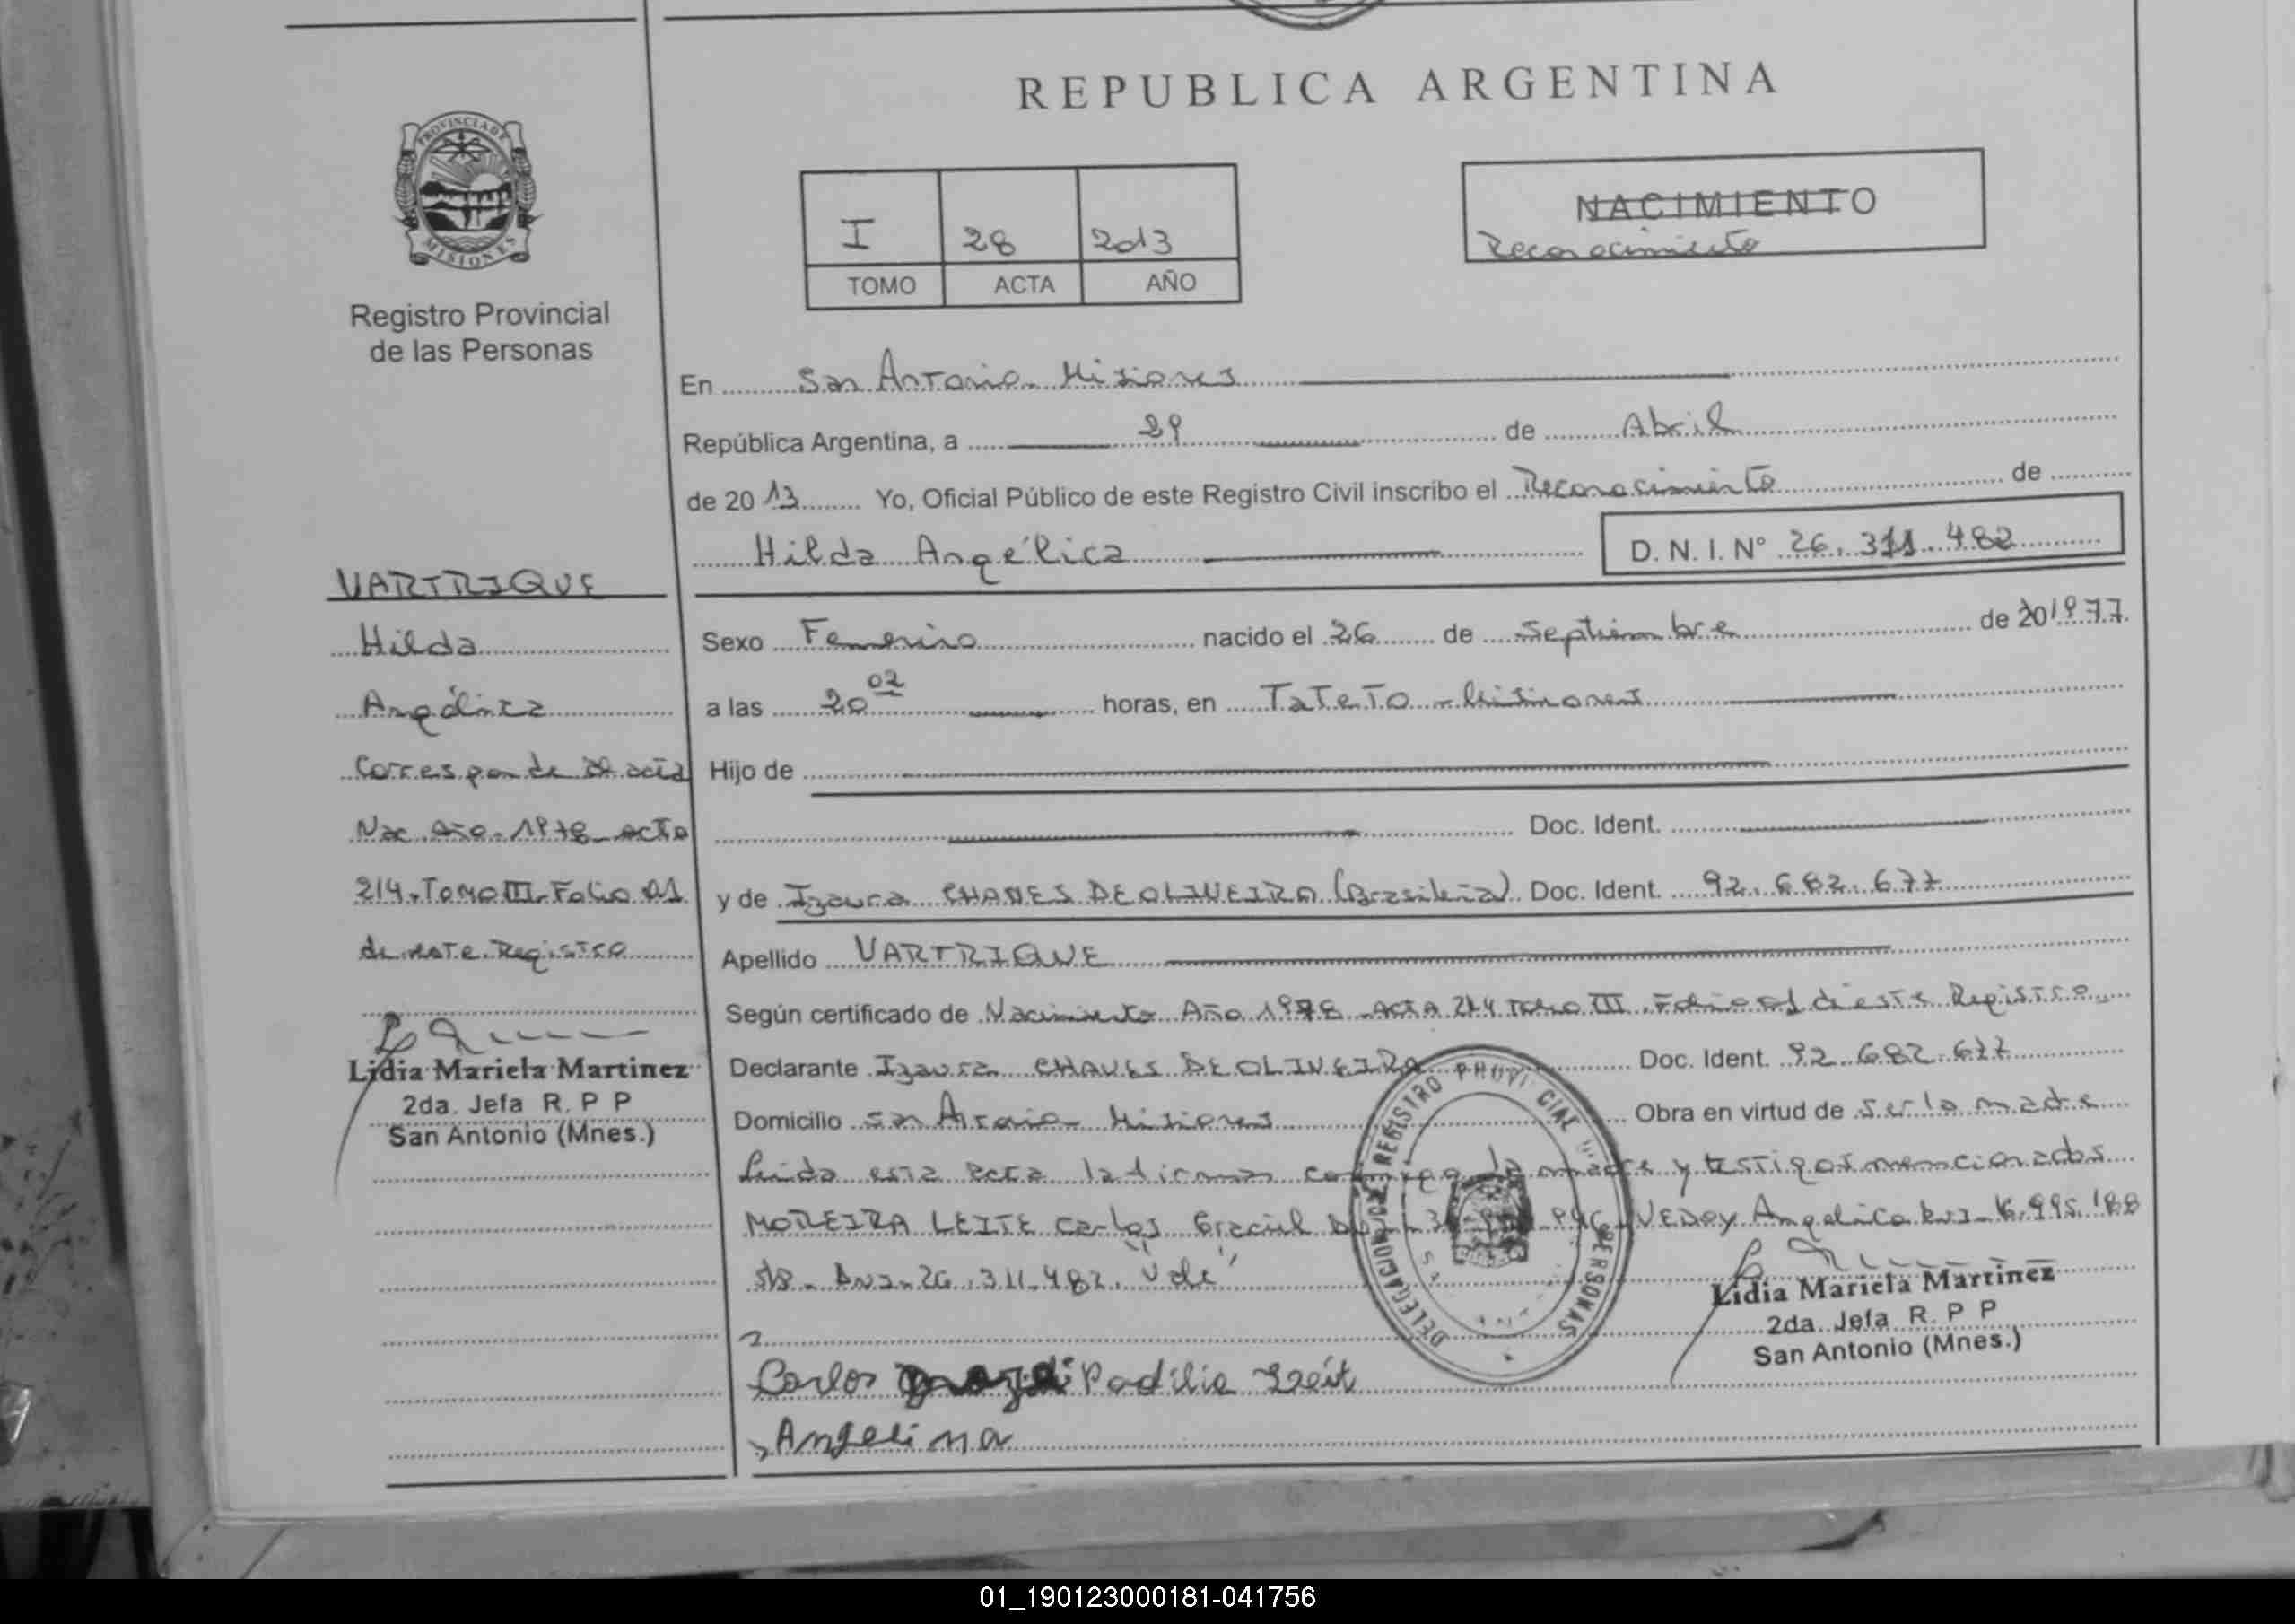 REPUBLICA ARGENTINA
PROVINCIA DE
MISIONES
Registro Provincial
de las Personas
I 28 2013
TOMO ACTA AÑO
NACIMIENTO
Reconocimiento
En San Antonio - Misiones
República Argentina, a 29 de Abril
de 2013 Yo, Oficial Público de este Registro Civil inscribo el Reconocimiento de
Hilda Angélica D. N. I. N° 26.311.482
Sexo Femenino nacido el 26 de Septiembre de 201977
a las 20 02 horas, en TaTeTo - Misiones
Hijo de
Doc. Ident.
y de Izaura CHAVES DE OLIVEIRA (Brasileña) Doc. Ident. 92.682.677
Apellido VARTRIQUE
Según certificado de Nacimiento Año 1978 - ACTA 214 TOMO III - Folio 01 de este Registro
Declarante Izaura CHAVES DE OLIVEIRA Doc. Ident. 92.682.677
Domicilio San Antonio - Misiones Obra en virtud de ser la madre
Leida esta acta la firman conmigo la madre y testigos mencionados
MOREIRA LEITE Carlos VEDOY Angelica 6.995.188
26.311.482. Vale
Carlos Padilia
Angelina
VARTRIQUE
Hilda
Angélica
Corresponde al acta
Nac. Año - 1978 - acta
214 - Tomo III - Folio 01
de este Registro
Lidia Mariela Martinez
2da. Jefa R. P P
San Antonio (Mnes.)
DELEGACION DE REGISTRO PROVINCIAL PERSONAS
Lidia Mariela Martinez
2da. Jefa R. P P
San Antonio (Mnes.)
01_190123000181-041756